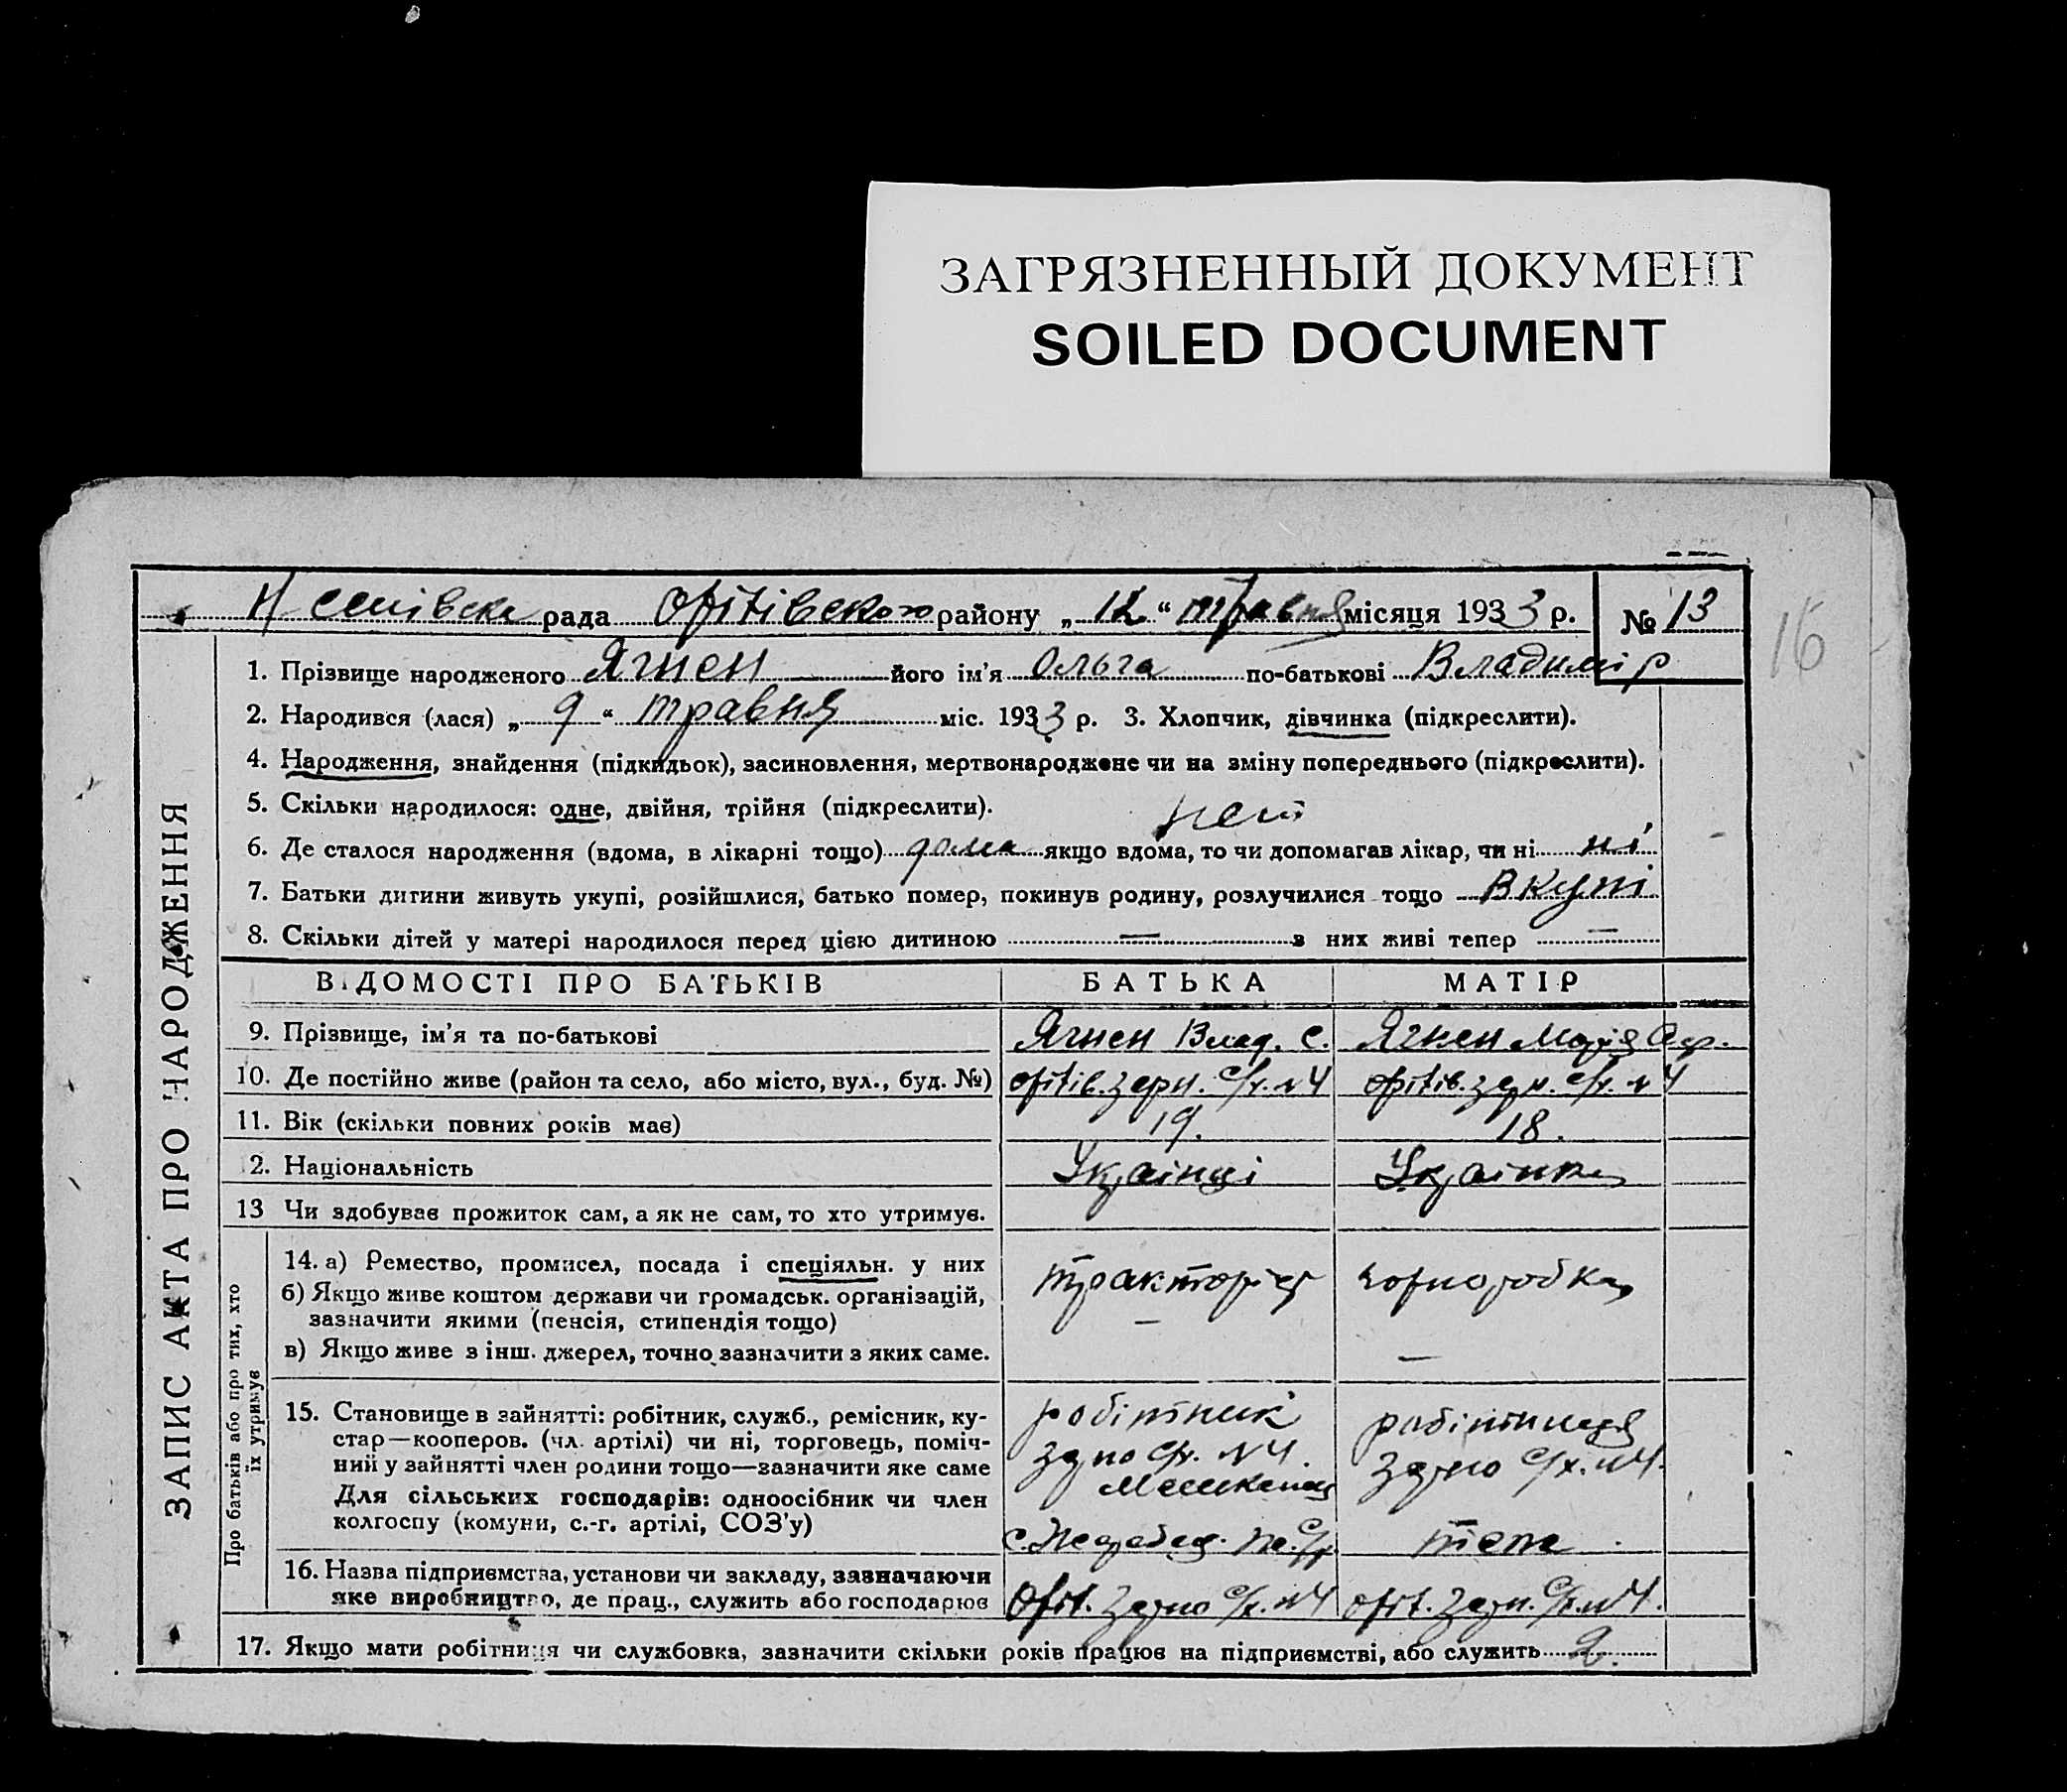 ЗАГРЯЗНЕННЫЙ ДОКУМЕНТ
SOILED DOCUMENT
16
рада району „ 12 “ травня місяця 1933 р. № 13
ЗАПИС АКТА ПРО НАРОДЖЕННЯ
1. Прізвище народженого Ягнен його ім'я Ольга по-батькові Владимір
2. Народився (лася) „ 9 “ травня міс. 1933 р. 3. Хлопчик, дівчинка (підкреслити).
4. Народження, знайдення (підкидьок), засиновлення, мертвонароджене чи на зміну попереднього (підкреслити).
5. Скільки народилося: одне, двійня, трійня (підкреслити).
6. Де сталося народження (вдома, в лікарні тощо) дома якщо вдома, то чи допомагав лікар, чи ні ні
7. Батьки дитини живуть укупі, розійшлися, батько помер, покинув родину, розлучилися тощо Вкупі
8. Скільки дітей у матері народилося перед цією дитиною — з них живі тепер —
ВІДОМОСТІ ПРО БАТЬКІВ БАТЬКА МАТІР
9. Прізвище, ім'я та по-батькові Ягнен Влад. С. Ягнен Марія
10. Де постійно живе (район та село, або місто, вул., буд. №) зерн. с/г. №4 зерн. с/г. №4
11. Вік (скільки повних років має) 19. 18.
2. Національність Українці Українка
13 Чи здобуває прожиток сам, а як не сам, то хто утримує.
Про батьків або про тих, хто
їх утримує
14. а) Ремество, промисел, посада і спеціяльн. у них тракторіст чорноробка
б) Якщо живе коштом держави чи громадськ. організацій,
зазначити якими (пенсія, стипендія тощо) —
в) Якщо живе з інш. джерел, точно зазначити з яких саме. —
15. Становище в зайнятті: робітник, служб., ремісник, ку- робітник робітниця
стар—кооперов. (чл. артілі) чи ні, торговець, поміч- №4 №4.
ний у зайнятті член родини тощо—зазначити яке саме
Для сільських господарів: одноосібник чи член
колгоспу (комуни, с.-г. артілі, СОЗ'у)
16. Назва підприємства, установи чи закладу, зазначаючи
яке виробництво, де прац., служить або господарює №4 №4.
17. Якщо мати робітниця чи службовка, зазначити скільки років працює на підприємстві, або служить 2.